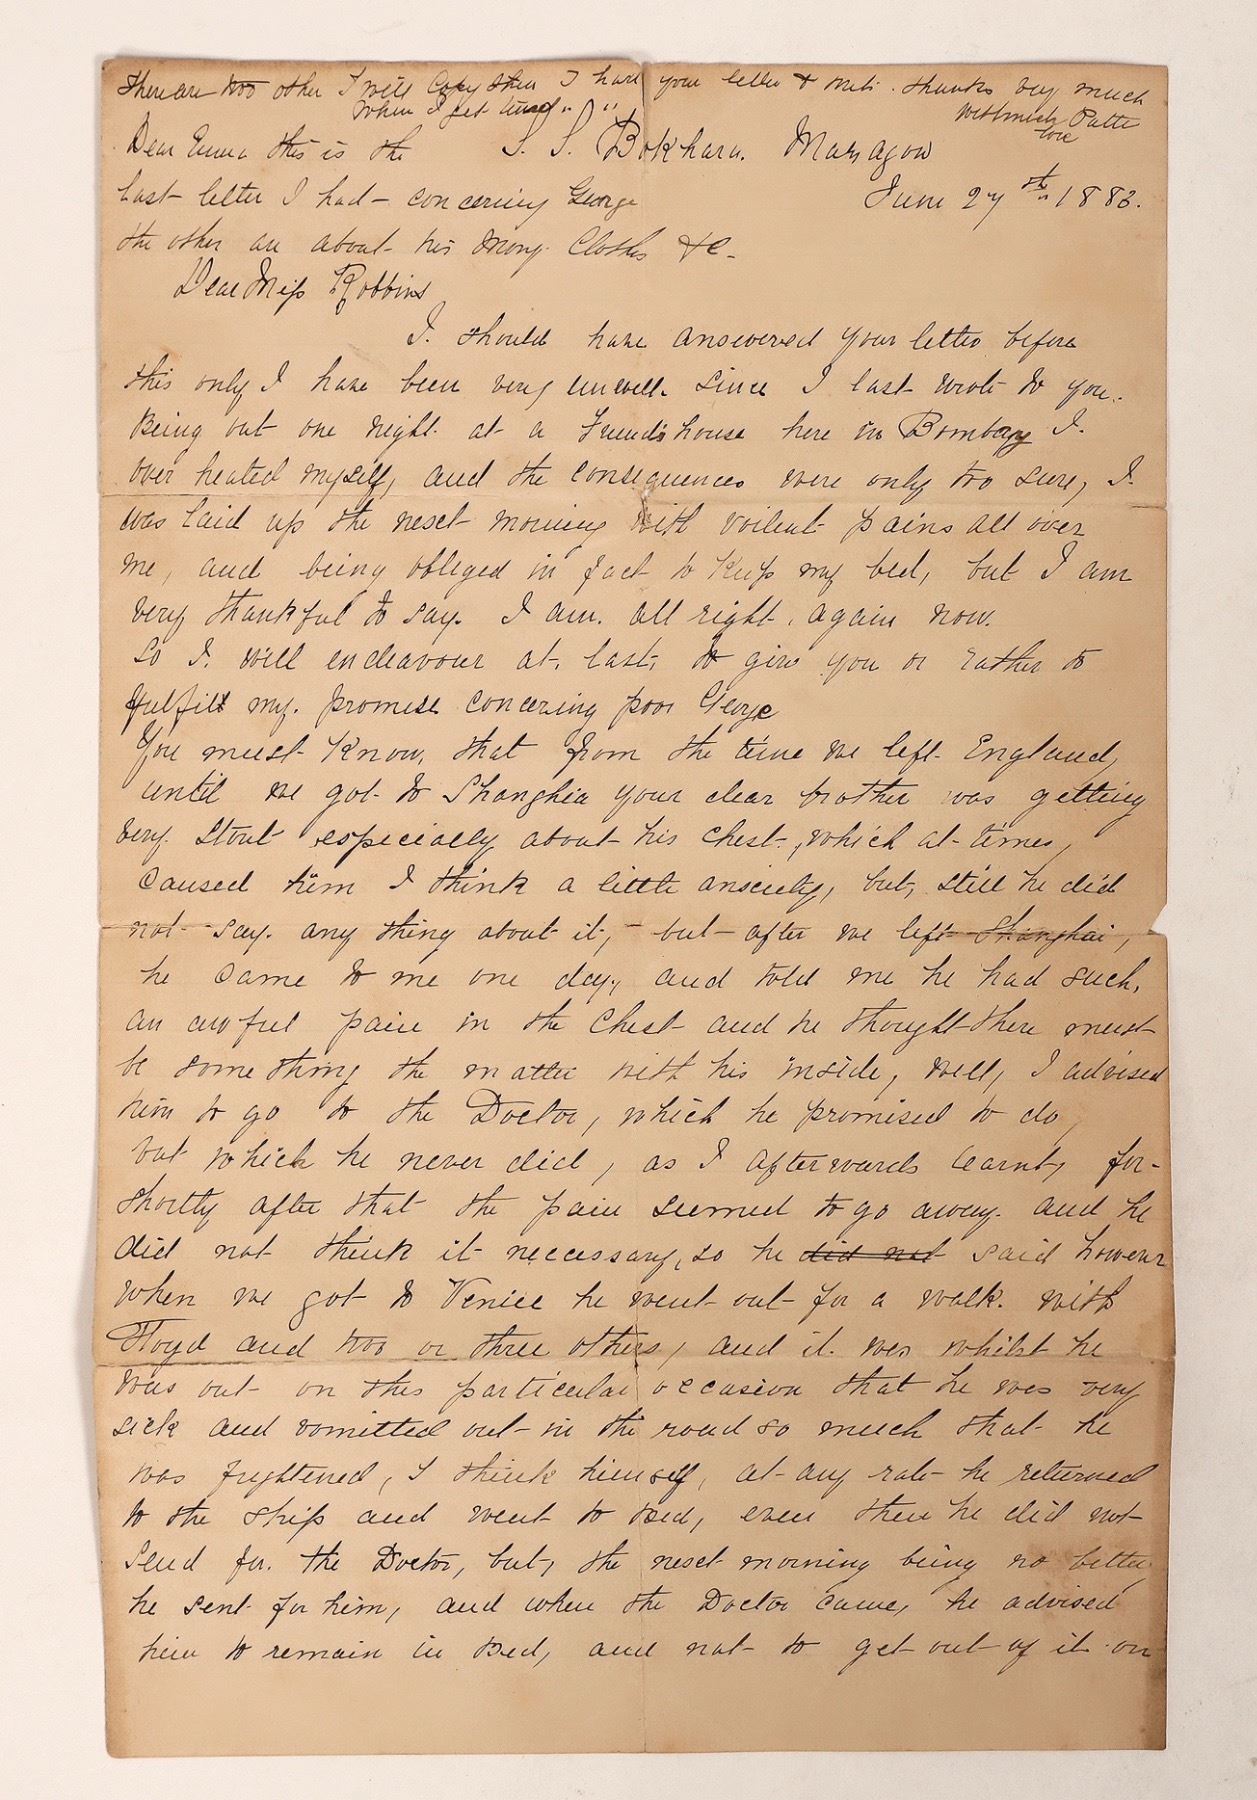 There are two other I will Copy then I had your letter & . thanks very much
When I get time " " With much love Pattie
Dear Emma this is the S. S. Bokhara. Mazagow
last letter I had - concerning George June 27th 1883.
the other are about his Mony Cloths &c -
Dear Miss Robbins
I. should have answered your letter before
this only I have been very unwell. Since I last wrote to you.
Being out one night. at a Friends house here in Bombay I.
over heated myself, and the consequences were only too sure, I.
was laid up the next morning with voilent pains all over
me, and being obleged in fact to keep my bed, but I am
very thankful to say. I am. all right. again now.
So I. will endeavour at. last, to give you or rather to
fulfill my. promise concering poor George
You must know, that from the time we left England,
until we got to Shanghia your dear brother was getting
very. Stout especially about his Chest, which at times,
Caused him I think a little anxiety, but, still he did
not say. any thing about it, - but - after we left Shanghai,
he came to me one day, and told me he had such,
an awful pain in the Chest and he thought there must
be some thing the matter with his inside, well, I advised
him to go to the Doctor, which he promised to do,
but which he never did, as I afterwards learnt, for -
shortly after that the pain seemed to go away. and he
did not think it neccessary, so he did not said however
when we got to Venice he went out for a walk. with
Floyd and two or three others, and it. was whilst he
was out on this particular occasion that he was very
sick and vomitted out in the road so much that he
was frightened, I think himself, at any rate he returned
to the ship and went to Bed, even then he did not
send for. the Doctor, but, the next morning being no better
he sent for him, and when the Doctor came, he advised
him to remain in Bed, and not to get out of it on